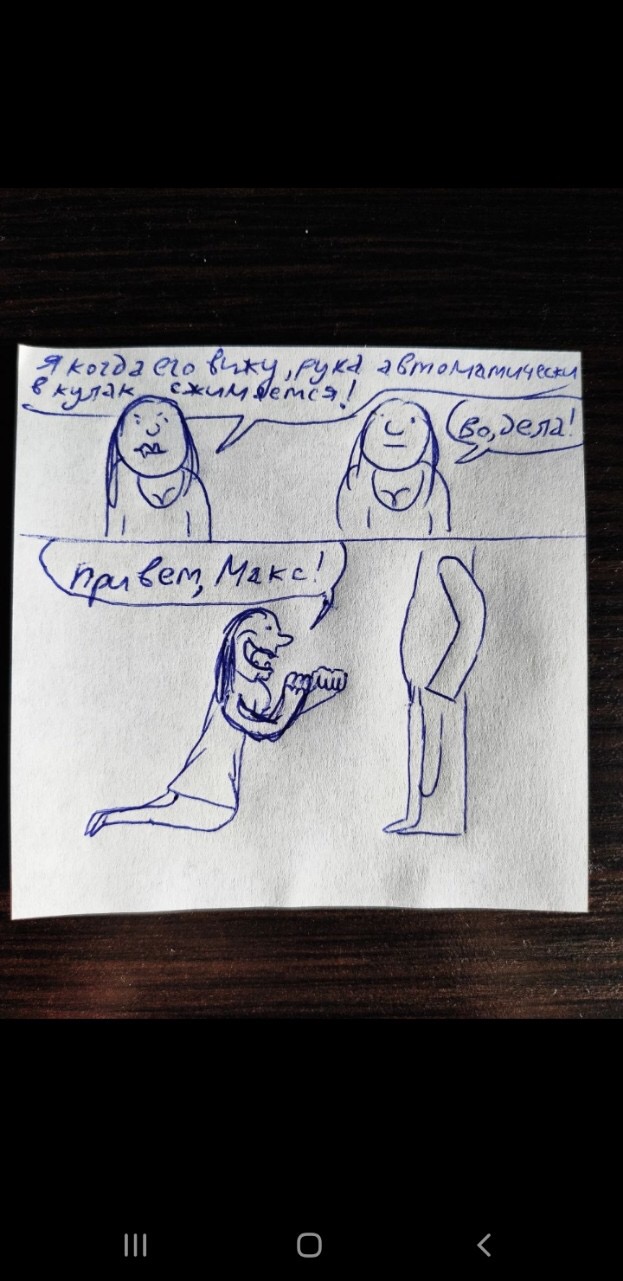 Я когда его вижу, рука автоматически
в кулак сжимается!
Во, дела!
Привет, Макс!